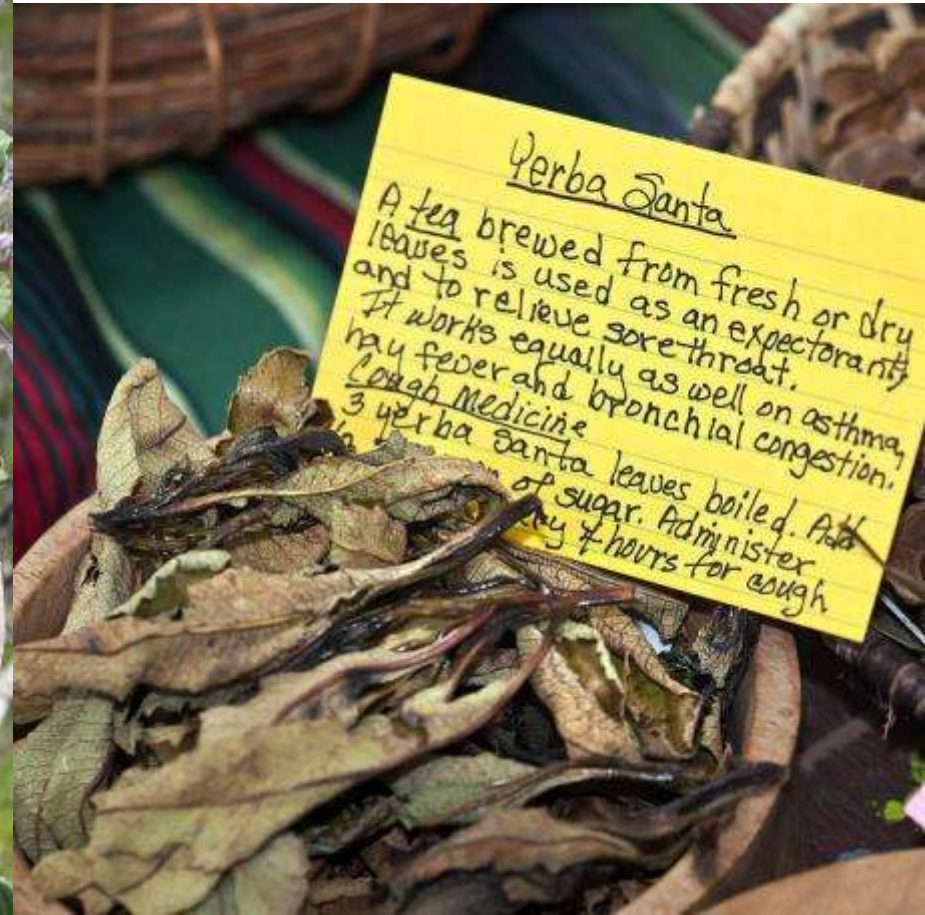 Yerba Santa
A tea brewed from fresh or dry
leaves is used as an expectorant,
and to relieve sore throat.
It works equally as well on asthma,
hay fever and bronchial congestion.
Cough Medicine
3 yerba santa leaves boiled. Add
of sugar. Administer
hours for cough